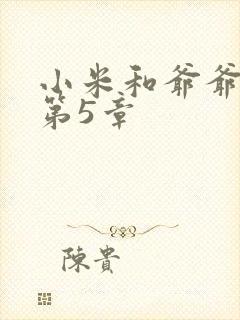 小米和爷爷
第5章
陳貴